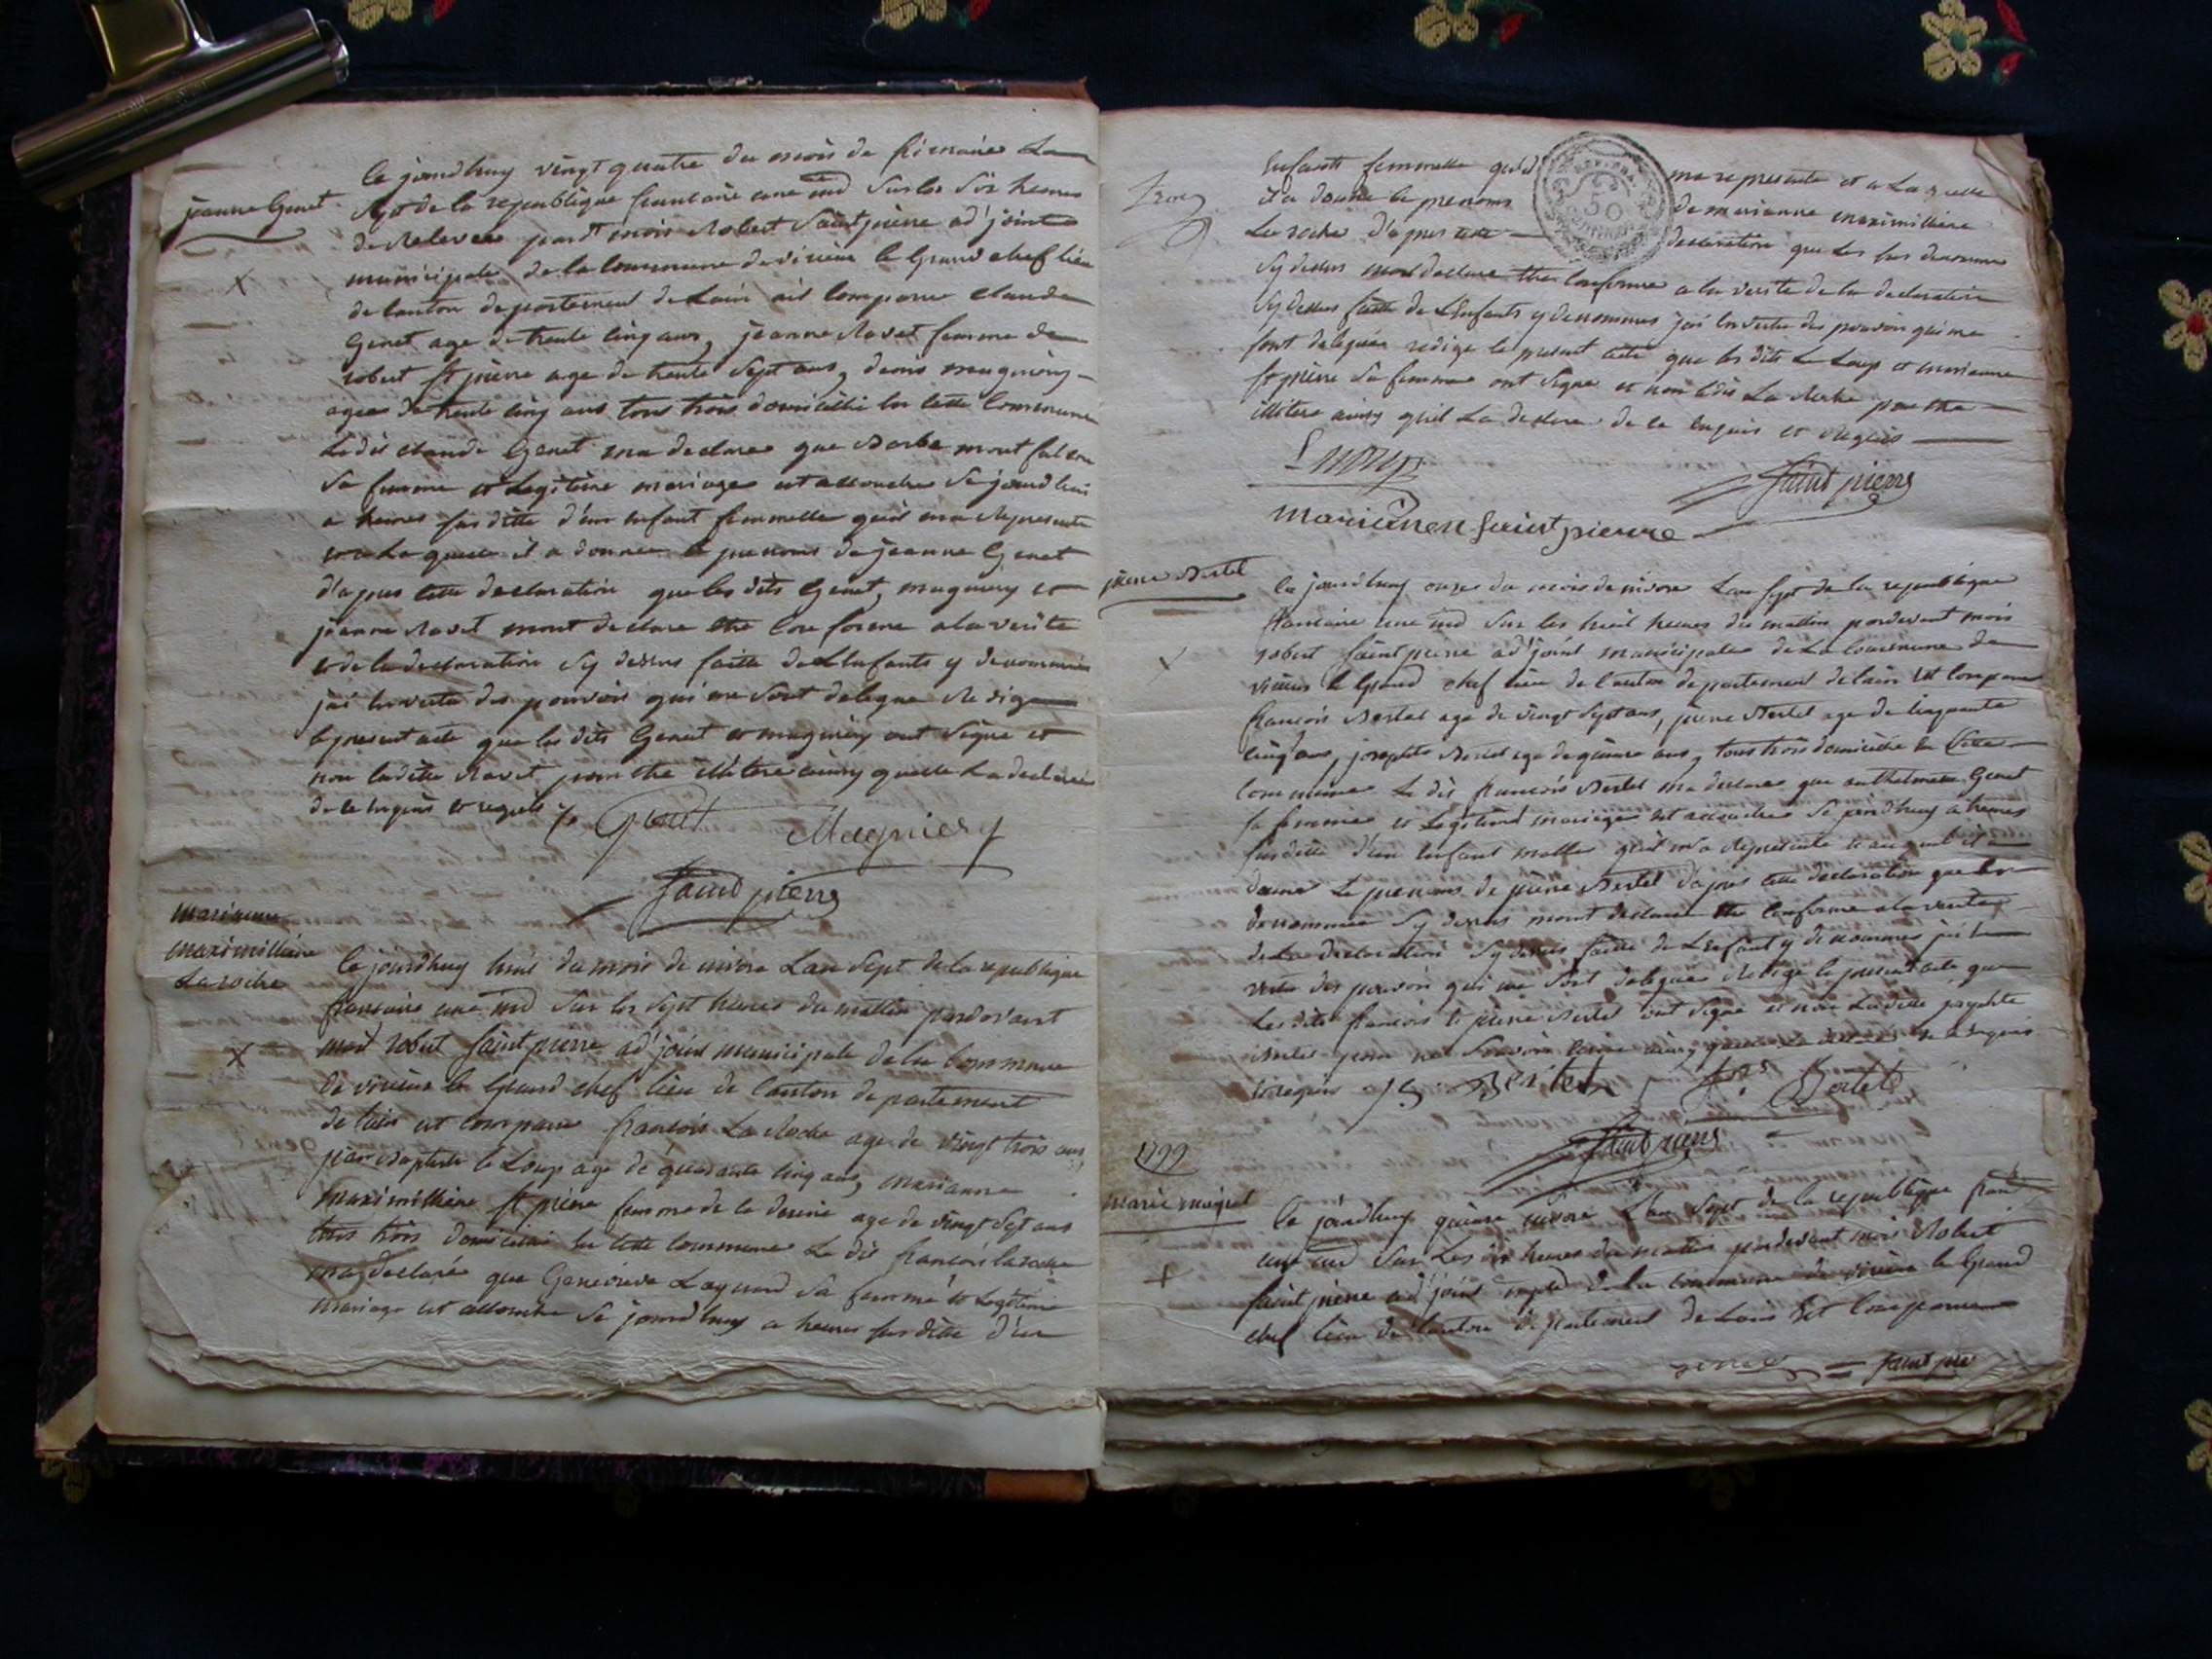 jeanne Genet
Ce jourdhuy vingt quatre du mois de frimaire Lan
Sept de la republique francaise une ind Sur les Six heures
de Relevee pardt mois Robert Saint pierre ad'joint
municipale de la Commune de virieu le Grand chef lieu
de Canton departement de Lain est Comparu Claude
Genet age de trente cinq ans, jeanne Ravet femme de
robert St pierre age de trente Sept ans, denis magnieny
agee de trente cinq ans tous trois domicillie en cette Commune
Le dit claude Genet ma declare que Barbe mont falcon
Sa femme et Legitime mariage est accouche Se jourdhuis
a heures sus ditte d'un enfant femmelle quil ma Represente
et a La quelle il a donnee le prenoms de jeanne Genet
d'apres cette declaration que les dits Genet, magnieny et
jeanne Ravet mont declare etre Conforme a la verite
et de la declaration Sy dessus faitte de Lenfants y denommes
jai en vertu des pouvoirs qui me Sont delegue Redige
le present acte que les dits Genet et magnieny ont Signe et
non laditte Ravet pour etre illitere ainsy quelle La declaree
de ce enquis et requis
Genet Magnieny
Saint pierre
marianne
maximilliene
Laroche
Ce jourdhuy huit du mois de nivose Lan Sept de la republique
francaise une ind Sur les Sept heures du mattin pardevant
mois robert Saint pierre ad'joint municipale de la Commune
de virieu le Grand chef lieu de Canton departement
de lain est comparu francois La Roche age de vingt trois ans
jean baptiste le Loup age de quarante cinq ans, marianne
maximilliene St pierre femme de le dernie age de vingt Sept ans
tous trois domicillie en cette Commune Le dit francois laroche
ma declaré que Genevieve Laynard Sa femme et Legitime
mariage est accouche Se jourdhuy a heures sus ditte d'un
Enfants femmelle quil ma represente et a La quelle
il a donne le prenoms de marianne maximilliene
La roche d'apres declaration que Les sus denommes
Sy dessus mont declare etre Conforme a la verite de la declaration
Sy dessus faitte de Lenfants y denommes jai En vertu des pouvoirs qui me
sont delegues redige le present acte que les dits Le Loup et marianne
St pierre Sa femme ont Signe et non ledit La Roche pour etre
illitere ainsy quil La declare de ce enquis et Requis
Saint pierre
mariånen saint pierre
pierre Bertet
Ce jourdhuy onze du mois de nivose Lan Sept de la republique
francaise une ind Sur les huit heures du mattin pardevant mois
robert Saint pierre ad'joint municipale de La Commune de
virieu le Grand chef lieu de Canton departement de lain est Comparu
francois Bertet age de vingt Sept ans, pierre Bertet age de cinquante
cinq ans, josephte Bertet age de quinze ans, tous trois domicillie en cette
Commune Le dit francois Bertet ma declare que Genet
sa femme et Legitime mariage est accouche Se jourdhuy a heures
susditte d'un enfant malle quil ma Represente et auquel il a
donne Le prenoms de pierre Bertet d'apres cette declaration que les
denommes Sy dessus mont declare etre Conforme a la verite
de La declaration Sy dessus faitte de Lenfant y denommes jai en
vertu des pouvoirs qui me Sont delegue Redige le present acte que
Les dits francois et pierre Bertet ont Signe et non Laditte josephte
Bertet pour ne Scavoir ecrire ainsy de ce enquis
et requis Bertet Bertet
Saint pierre
1799
marie
Ce jourdhuy quinze nivose Lan Sept de la republique franc
une ind Sur Les dix heures du mattin pardevant mois Robert
Saint pierre ad'joint mple de La commune de virieu le Grand
chef lieu de Canton departement de Lain Est Comparu